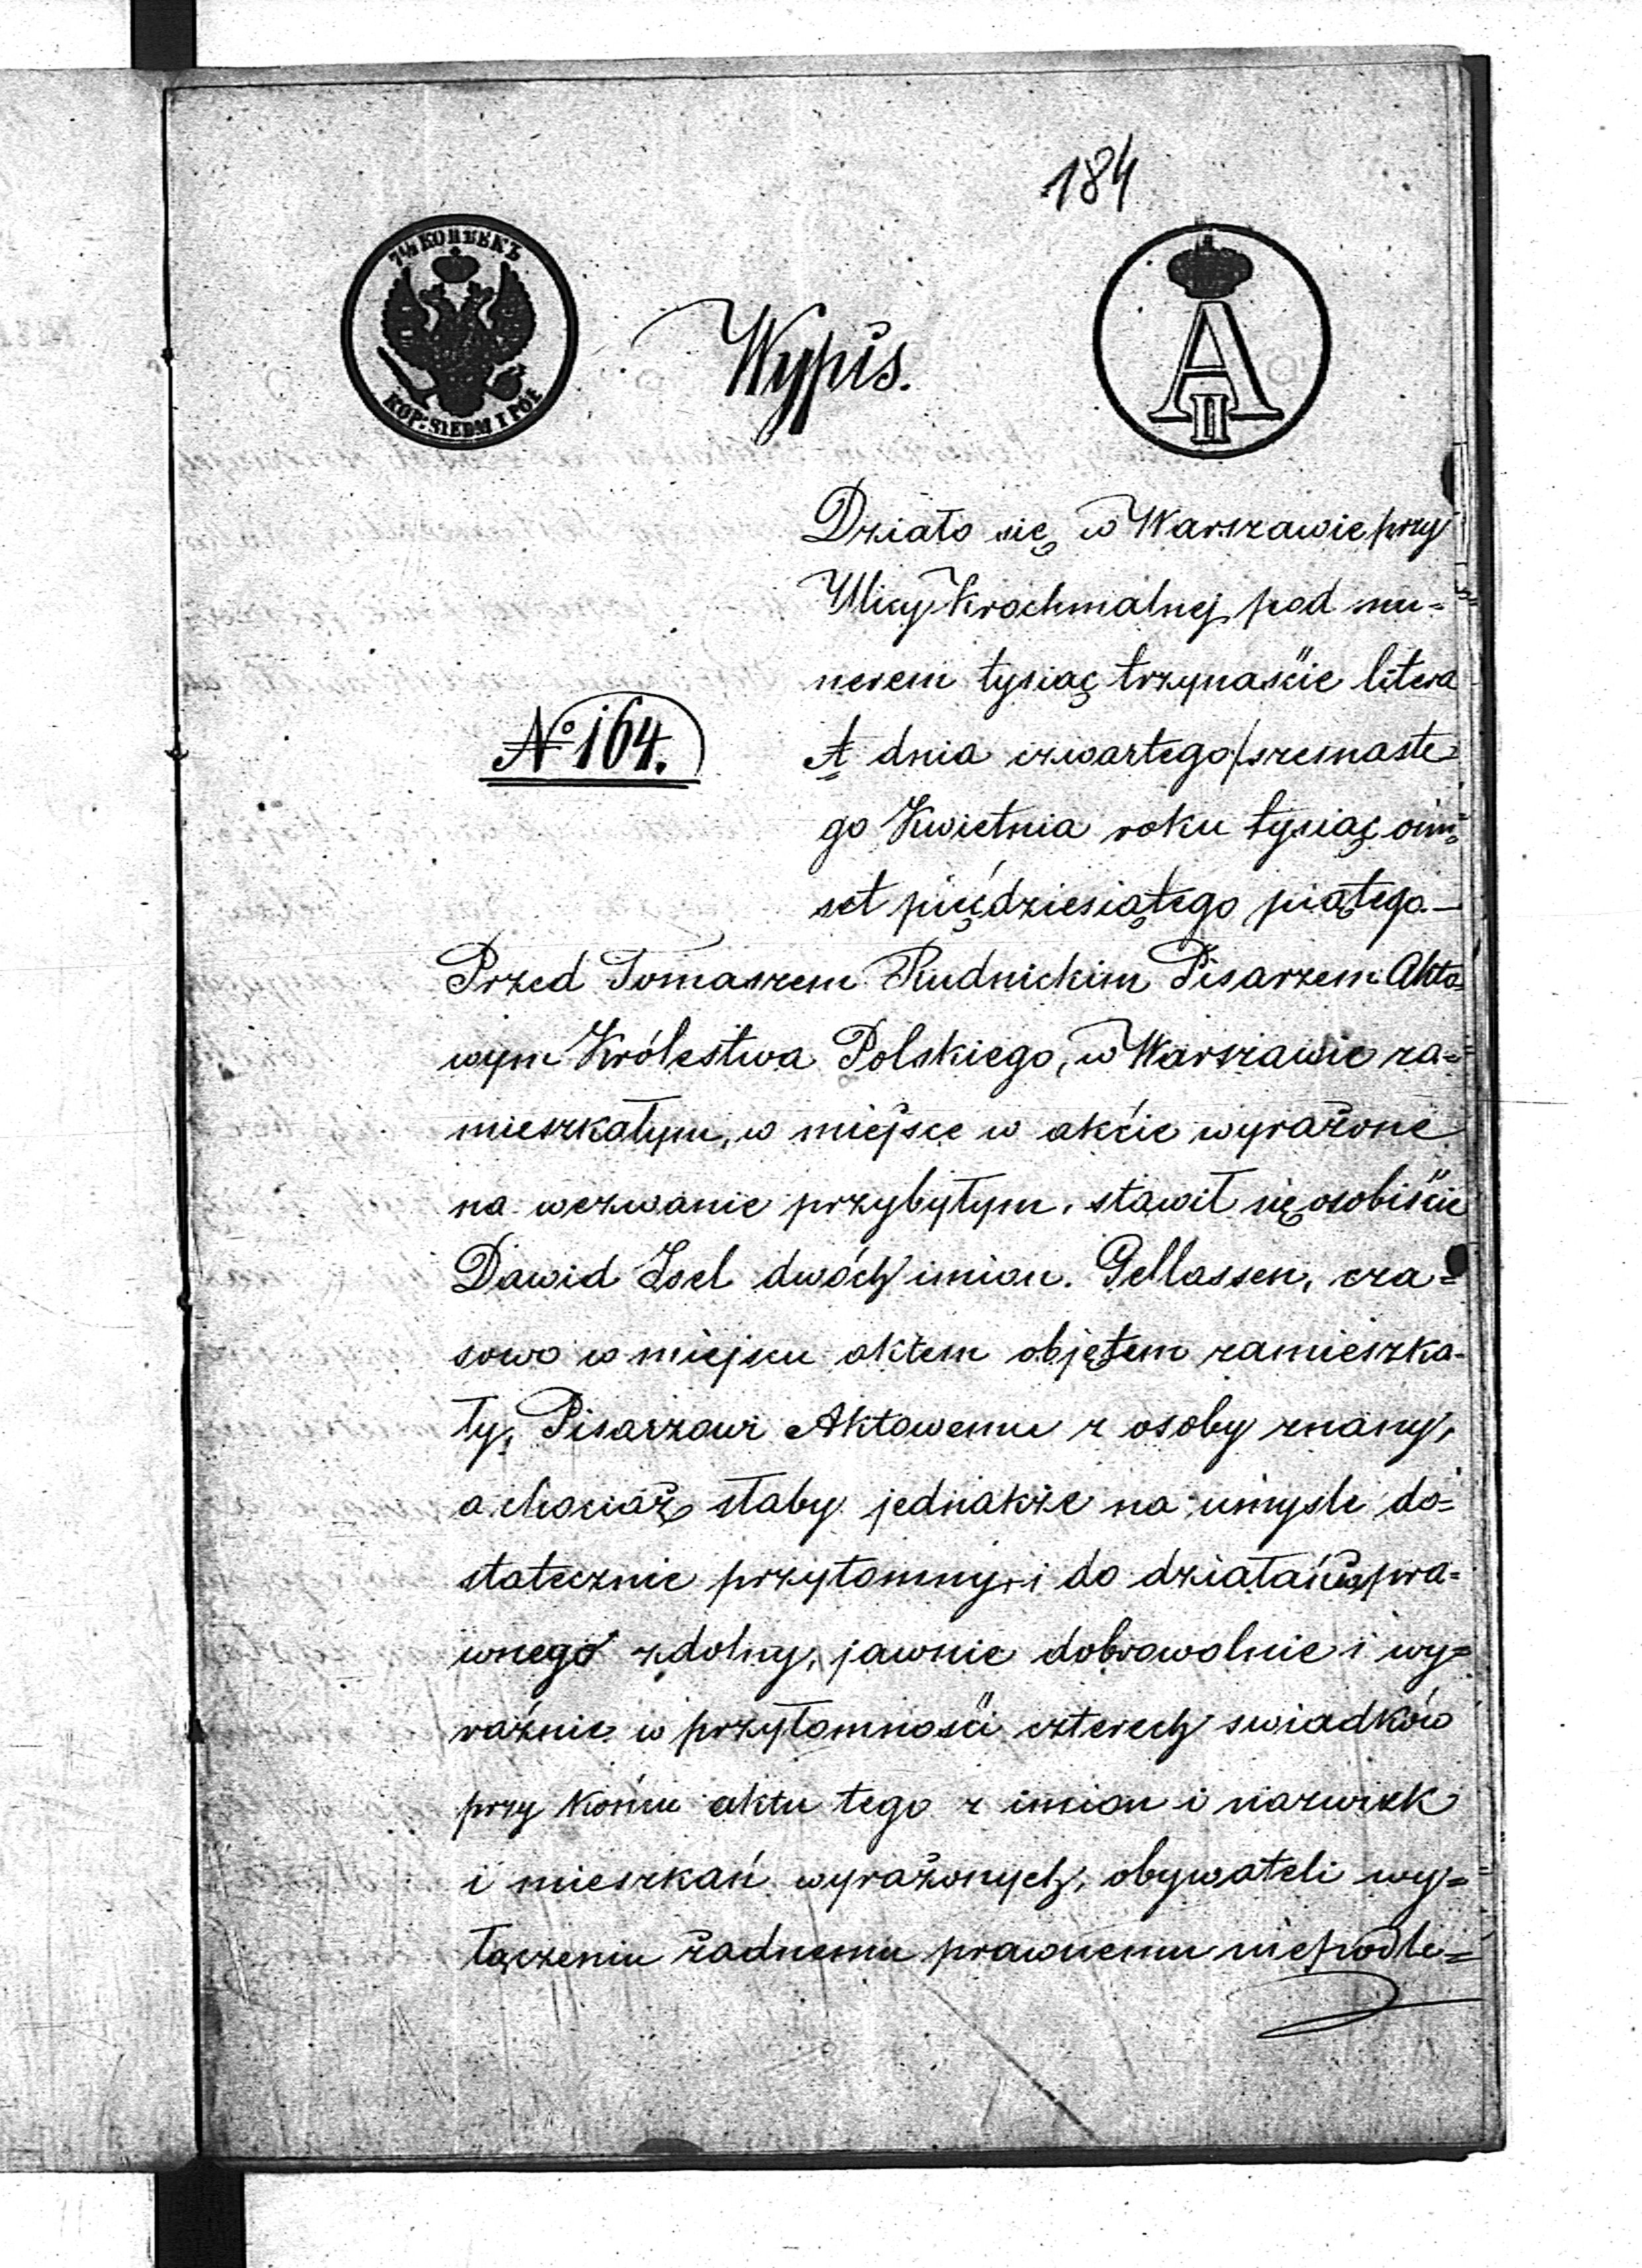 184
7½ КОПѢЕКЪ
KOP: SIEDM I PÓŁ
Wypis.
A II
Działo się w Warszawie przy
Ulicy Krochmalnej pod nu=
merem tysiąc trzynaście litera
№ 164.
A dnia czwartego/szesnaste
go Kwietnia roku tysiąc ośm=
set pięćdziesiątego piątego.—
Przed Tomaszem Rudnickim Pisarzem Akto=
wym Królestwa Polskiego, w Warszawie za=
mieszkałym, w miejsce w akcie wyrażone
na wezwanie przybyłym, stawił się osobiście
Dawid Josel dwóch imion Gellassen, cza=
sowo w miejscu aktem objętem zamieszka=
ły, Pisarzowi Aktowemu z osoby znany,
a chociaż słaby jednakże na umyśle do=
statecznie przytomny, i do działania pra=
wnego zdolny, jawnie dobrowolnie i wy=
raźnie w przytomności czterech swiadków
przy końcu aktu tego z imion i nazwisk
i mieszkań wyrażonych, obywateli wy=
łączeniu żadnemu prawnemu niepodle=